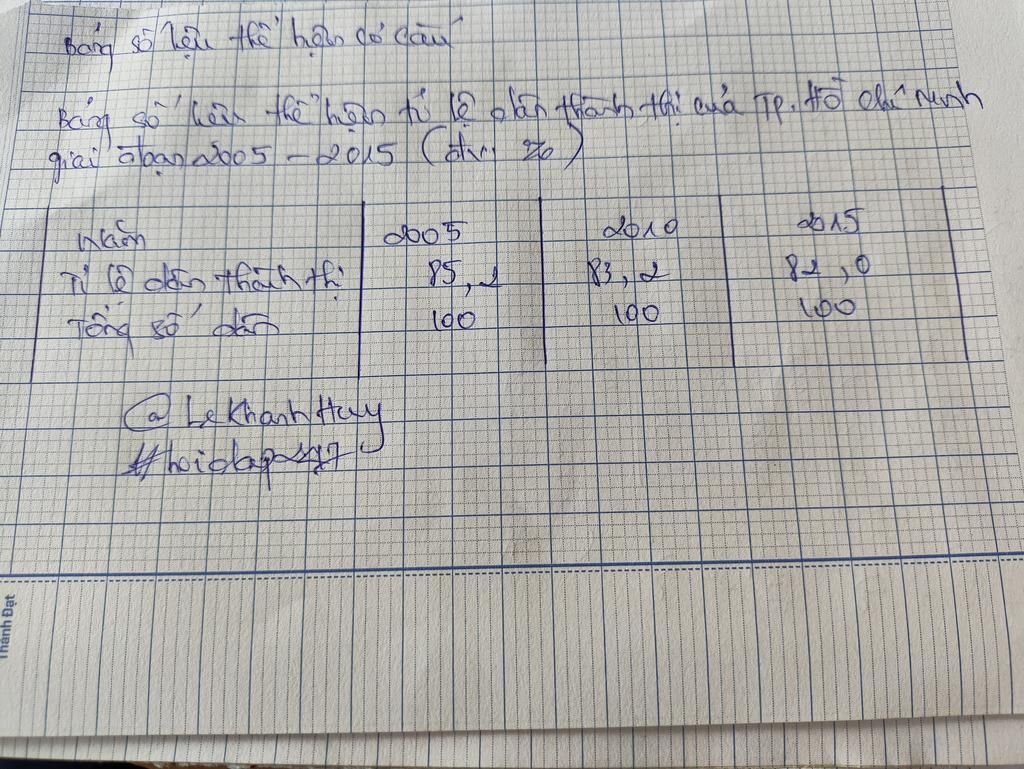 Bảng số liệu thể hiện cơ cấu
Bảng số liệu thể hiện tỉ lệ dân thành thị của TP. Hồ Chí Minh
giai đoạn 2005 - 2015 (đơn vị %)
Năm 2005 2010 2015
Tỉ lệ dân thành thị 85,2 83,2 82,0
Tổng số dân 100 100 100
@LeKhanhHuy
#hoidap247
Thành Đạt